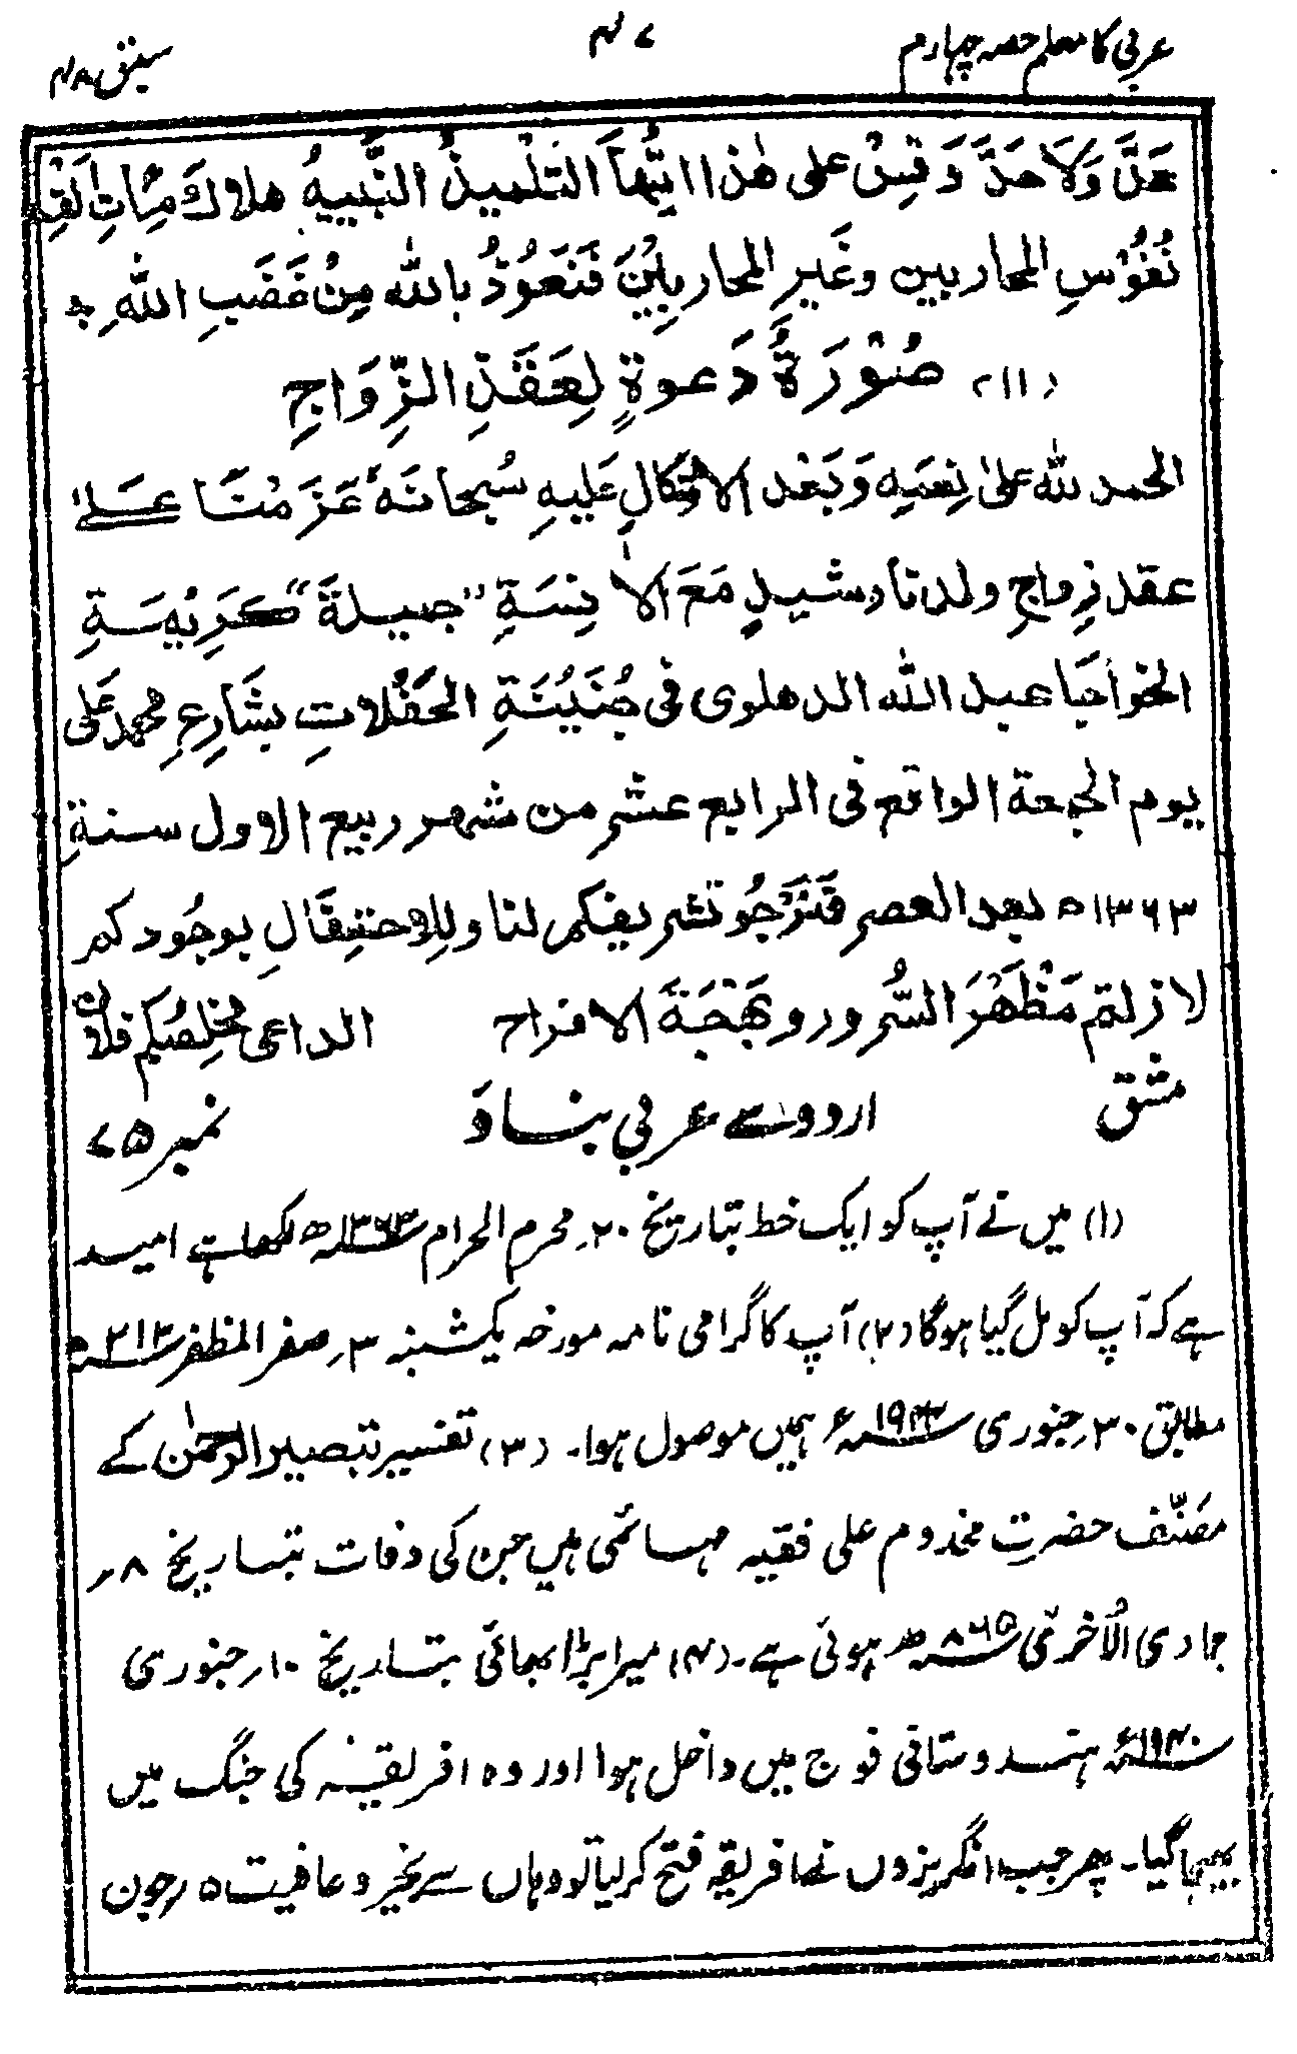 عربی کا معلم حصہ چہارم ۴۷ سبق ۴۸
عَدَّ وَلَا حَدَّ وَقِسْ علی ھٰذا ایُّھَا التلْمیذُ النَّبِیہُ ھلاکَ مِئَاتِ اَلْفِ
نُفُوْسِ المحاربین وغَیرِ المحاربِیْنَ فَنَعَوُذُ باللہ مِنْ غَضَبِ اللہِ ؞
(۱۱) صُوْرَۃُ دَعوۃٍ لِعَقَدِ الزِّوَاجِ
الحمد للہ علیٰ نِعَمِہٖ وَبَعْد الاتِّکالِ عَلیہِ سُبحانَہٗ عَزَمْنَا عَلیٰ
عقد زِواجِ ولدنا رشیدٍ مَعَ الاٰنِسَۃِ "جمیلۃَ" کَرِیْمَۃِ
الخواجَا عبد اللہ الدھلوی فی جُنَیْنَۃِ الحَفْلاتِ بشَارِعِ محمد عَلی
یوم الجمعۃ الواقع فی الرابع عشر من شھر ربیع الاول سنۃِ
۱۳۶۳ھ بعد العصر فَنَرْجُو تشریفکم لنا وللِاحتِفَالِ بوجُودکم
لا زلتم مَظْھَرَ السُّرور و بَھْجَۃَ الافراح الداعی مخلِصُکم فلان
مشق اردو سے عربی بناؤ نمبر ۷۵
(۱) میں نے آپ کو ایک خط بتاریخ ۲۰ ؍ محرم الحرام ۱۳۶۳ھ لکھا ہے امید
ہے کہ آپ کو مل گیا ہوگا (۲) آپ کا گرامی نامہ مورخہ یکشنبہ ۳ ؍ صفر المظفر ۳۱۳ ھ
مطابق ۳۰ ؍ جنوری ۱۹۴۴ء ہمیں موصول ہوا۔ (۳) تفسیر تبصیر الرحمٰن کے
مصنّف حضرتِ مخدوم علی فقیہ مہائمی ہیں جن کی وفات بتاریخ ۸ ؍
جمادی الاُخریٰ ۸۶۵ ھ ہوئی ہے۔ (۴) میرا بڑا بھائی بتاریخ ۱۰ ؍ جنوری
۱۹۴۰ء ہندوستانی فوج میں داخل ہوا اور وہ افریقہ کی جنگ میں
بھیجا گیا۔ پھر جب انگریزوں نے افریقہ فتح کرلیا تو وہاں سے بخیر و عافیت ۵ ؍ جون